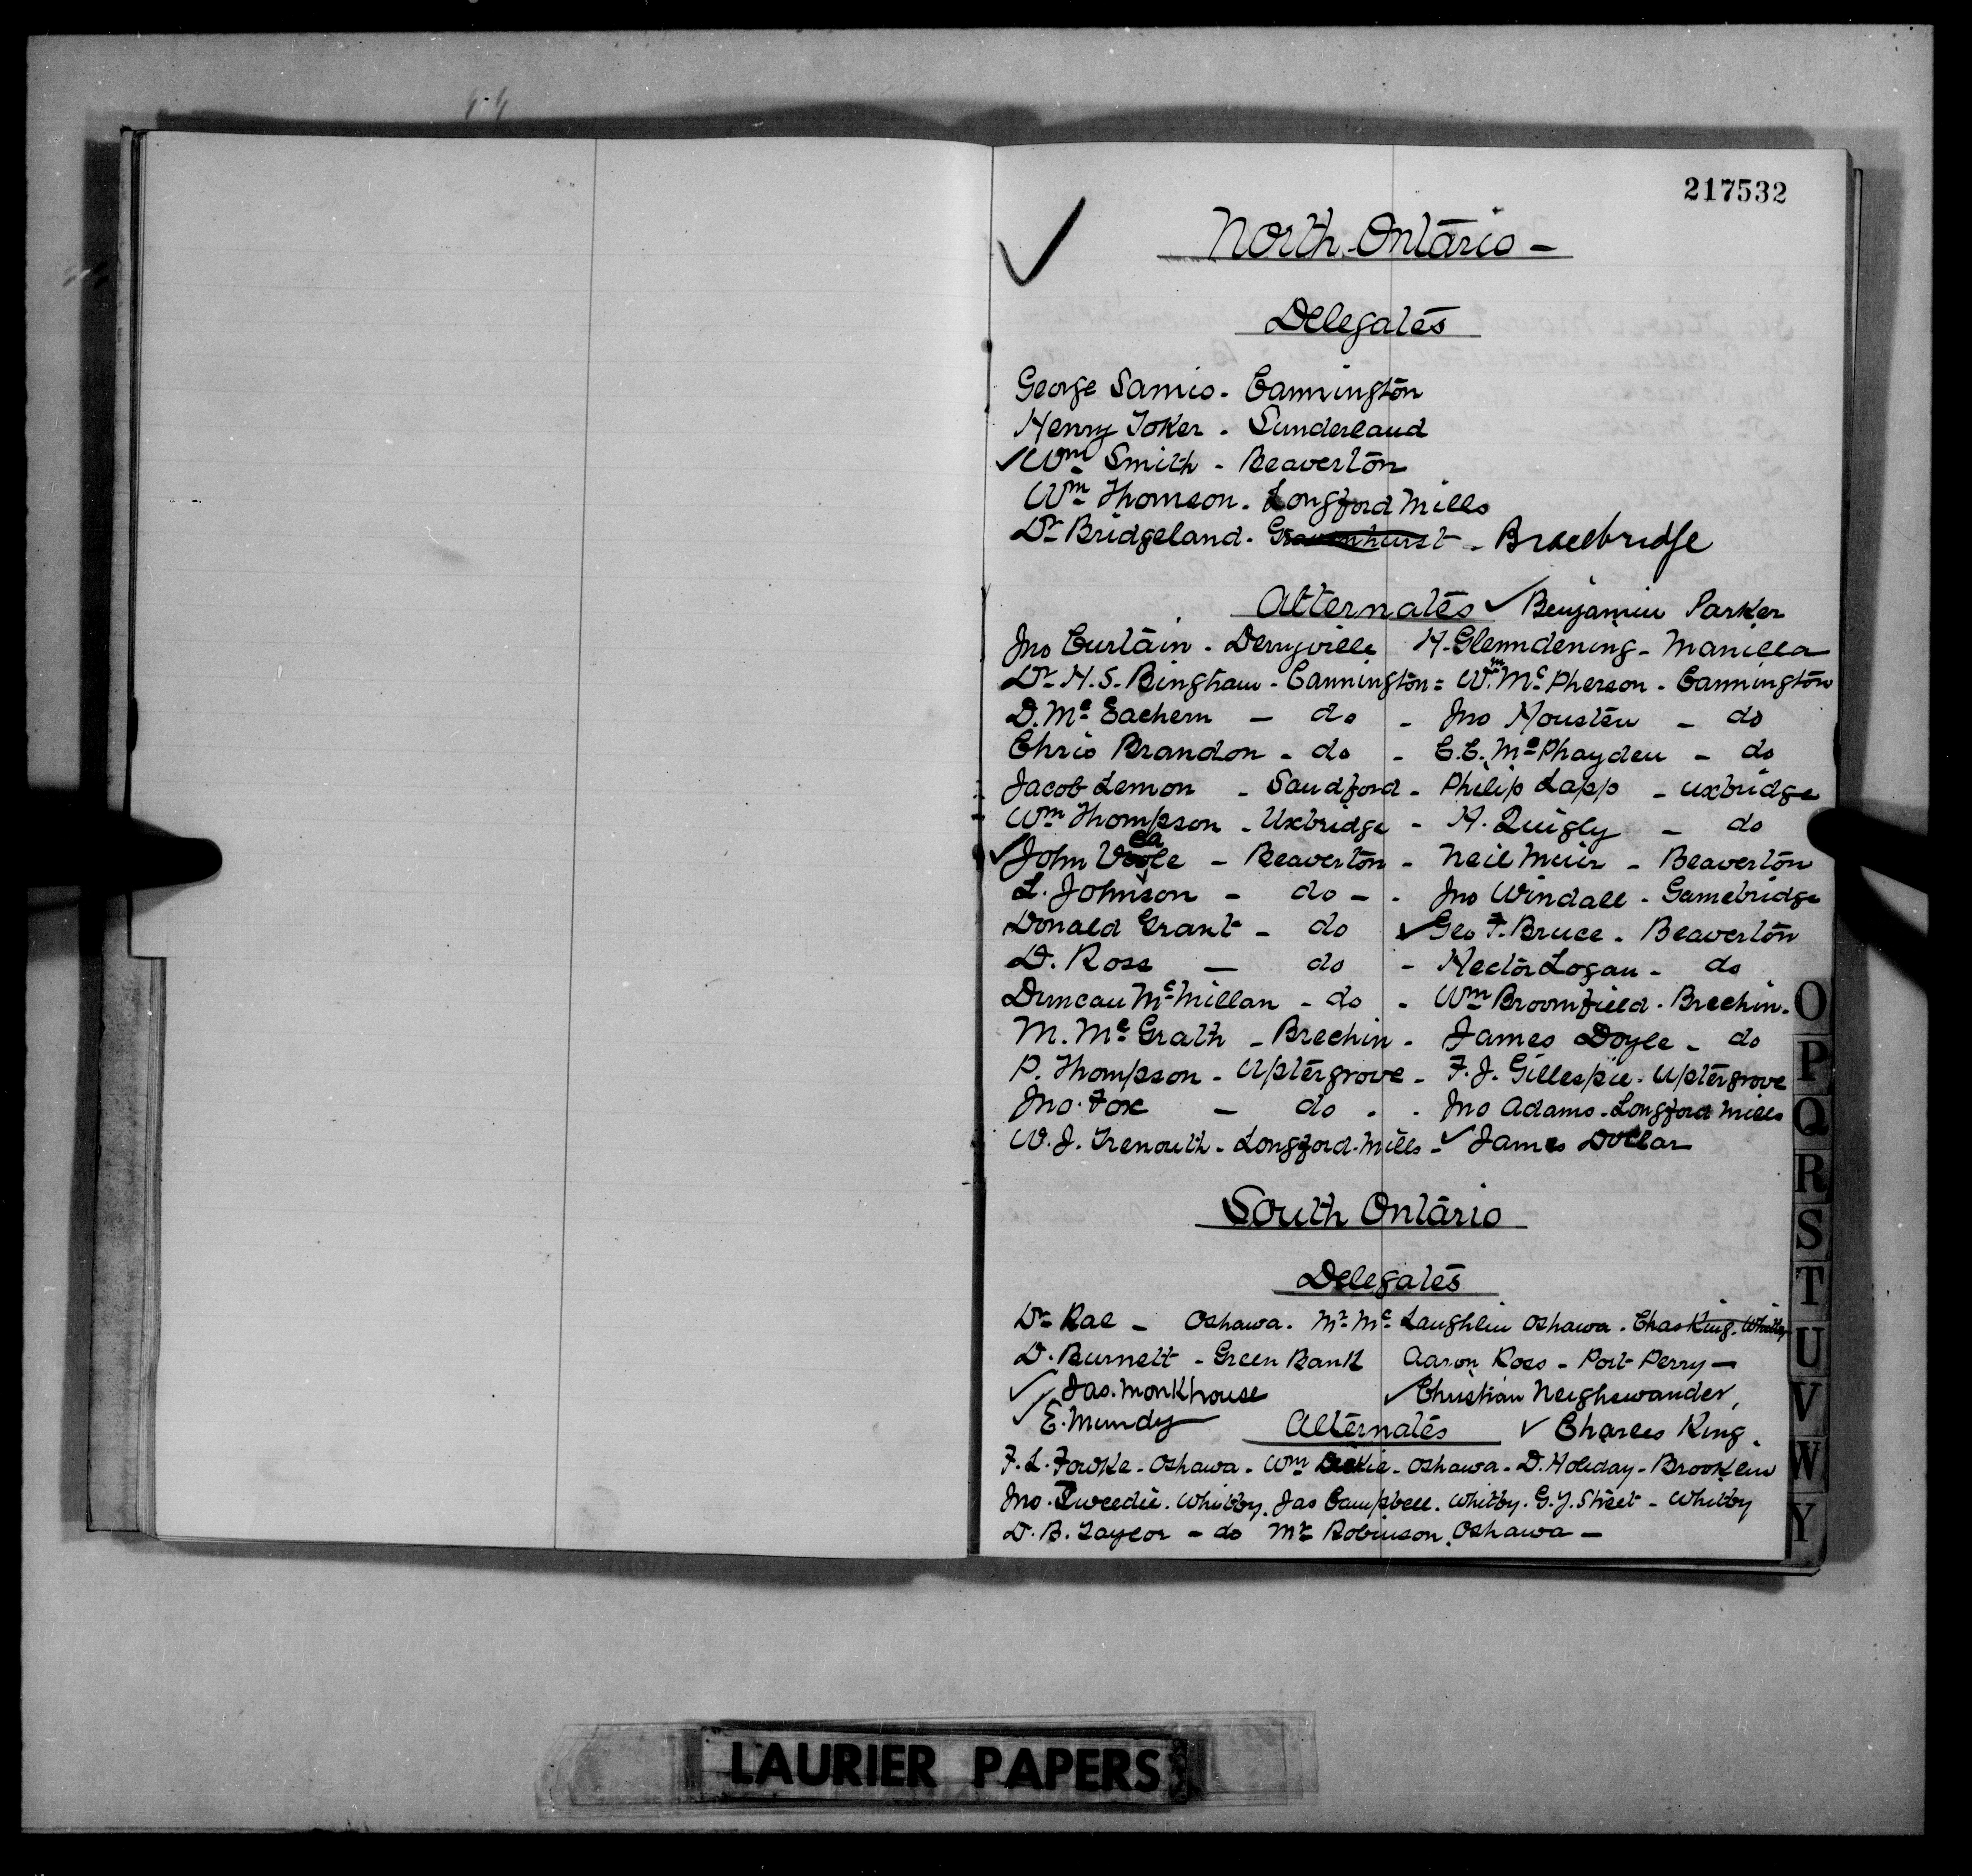 217532
✓ North Ontario -
Delegates
George Samis - Cannington
Henry Toker - Sunderland
✓ Wm Smith - Beaverton
Wm Thomson - Longford Mills
Dr Bridgeland - Gravenhurst - Bracebridge
Alternates ✓ Benjamin Parker
Jno Curtain - Derryville H. Glenndening - Manilla
Dr H. S. Bingham - Cannington = Wm McPherson - Cannington
D. McEachern - do - Jno Housten - do
Chris Brandon - do - E. E. McPhayden - do
Jacob Lemon - Sandford - Philip Lapp - Uxbridge
Wm Thompson - Uxbridge - H. Quigly - do
✓ John Veale - Beaverton - Neil Muir - Beaverton
L. Johnson - do - - Jno Windall - Gamebridge
Donald Grant - do ✓ Geo F. Bruce - Beaverton
D. Ross - do - Hector Logan - do
Duncan McMillan - do - Wm Broomfield - Brechin -
M. McGrath - Brechin - James Doyle - do
P. Thompson - Uptergrove - F. J. Gillespie - Uptergrove
Jno. Fox - do - - Jno Adams - Longford Mills
W. J. Trenouth - Longford Mills - ✓ James Dollar
South Ontario
Delegates
Dr Rae - Oshawa. Mr McLaughlin Oshawa - Chas King - Whitby
D. Burnett - Green Bank Aaron Ross - Port Perry -
✓ Jas. Monkhouse ✓ Christian Neighswander,
✓ E. Mundy Alternates ✓ Charles King.
F. L. Fowke - Oshawa - Wm Dickie - Oshawa - D. Holiday - Brooklin
Jno. Tweedie - Whitby. Jas Campbell. Whitby. G. Y. Street - Whitby
D. B. Taylor - do Mr Robinson. Oshawa -
O
P
Q
R
S
T
U
V
W
Y
LAURIER PAPERS